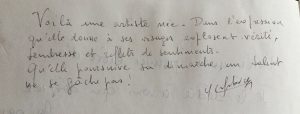 Voilà une artiste née. Dans l'expression
qu'elle donne à ses visages explosent vérité,
tendresse et reflets de sentiments.
Qu'elle poursuive sa démarche, un talent
ne se gâche pas!